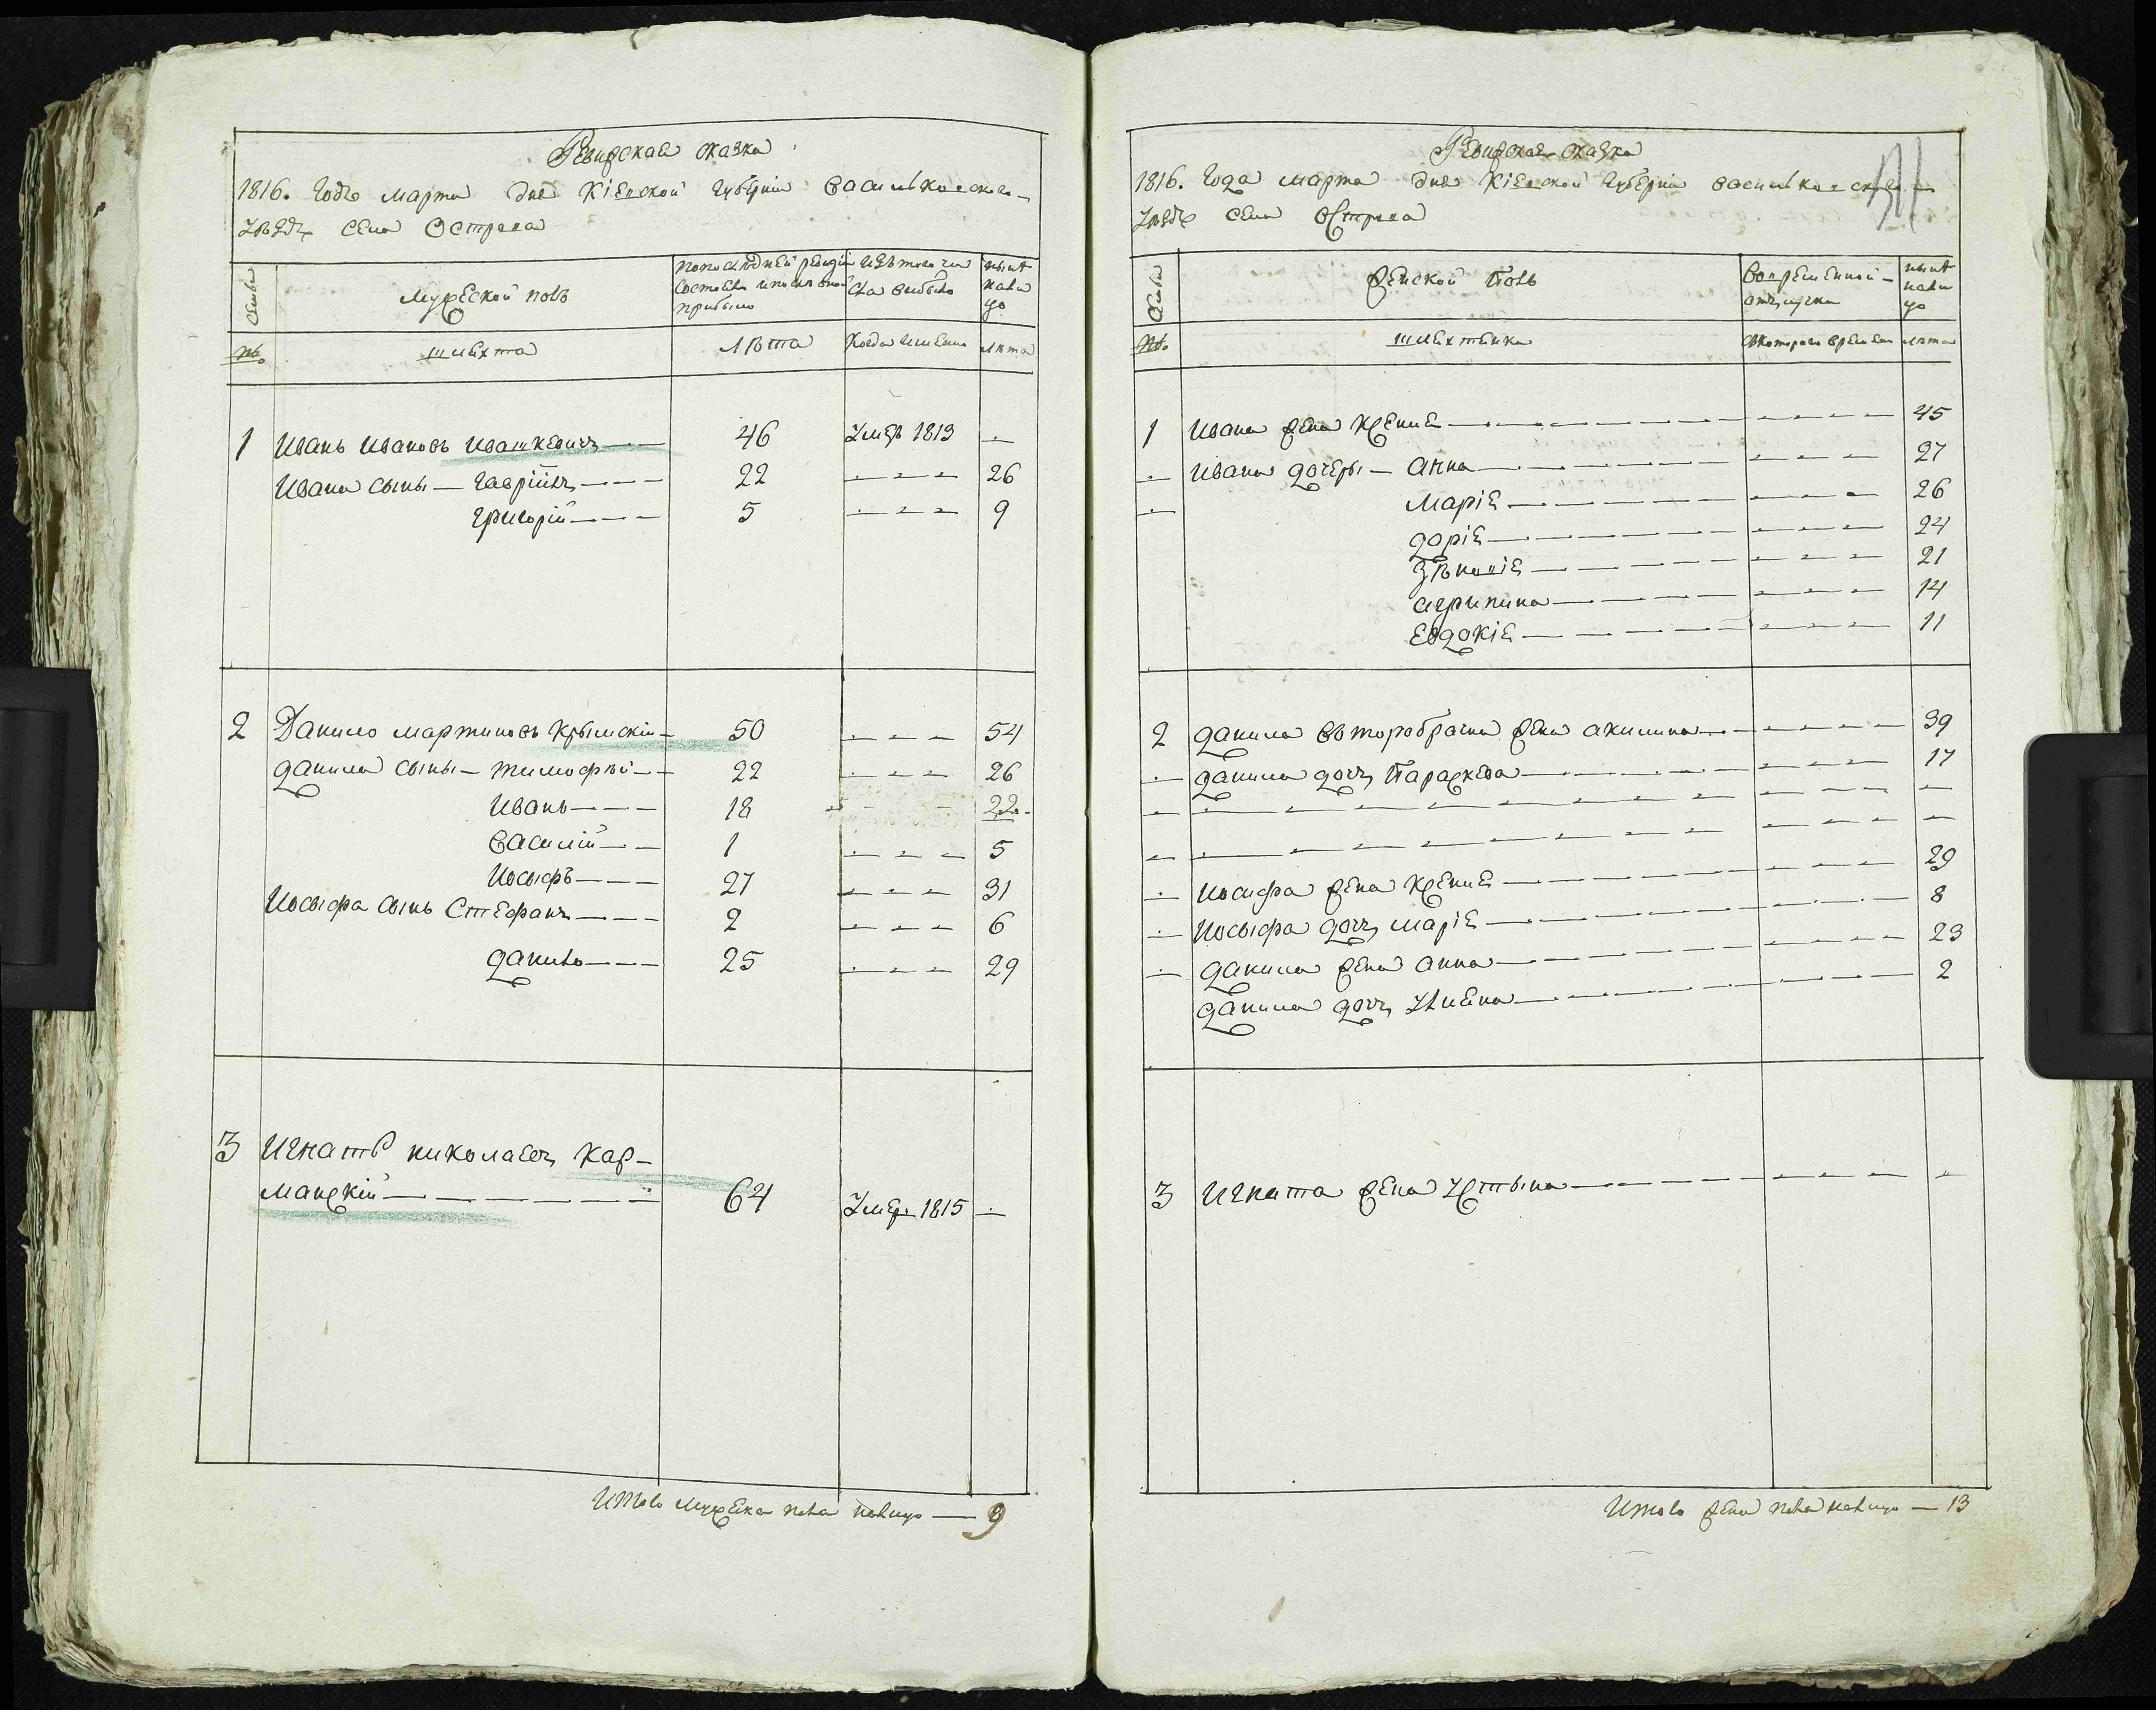 Ревизская сказка
1816. Годъ марта дня Кіевской губерніи васильковского
уѣздъ села Острова
семьи
мужеской полъ
попоследней ревизіи состояло ипослѣ оной прибыло
изътого числа выбыло
нынѣ налицо
№.
шляхта
лѣта
Когда имянно
лѣта
1 Иванъ Ивановъ Ивашкевичъ 46 умеръ 1813
Ивана сыны Гавріилъ 22 26
григорій 5 9
2 Данило мартиновъ Крымскій 50 54
данила сыны тимофѣй 22 26
Иванъ 18 22
василій 1 5
Иосыфъ 27 31
Иосыфа сынъ Стефанъ 2 6
данило 25 29
3 Игнатъ николаевъ Кар-
манскій 64 умер. 1815
Итого мужеска пола налицо — 9
Ревизская сказка
1816. Года марта дня Кіевской губерніи васильковского
уѣздъ села Острова
семьи
женской полъ
вовременной отлучки
нынѣ налицо
№.
шляхтянки
скоторого времени
лѣта
1 Ивана жена Ксенія 45
Ивана дочеры Анна 27
Марія 26
дарія 24
Зѣновія 21
агрипина 14
Евдокія 11
2 данила второбрачна жена акилина 39
данила дочъ Параскева 17
Иосифа жена Ксенія 29
Иосыфа дочъ марія 8
данила жена анна 23
данила дочъ Улиена 2
3 Игната жена Устына
Итого жена пола налицо — 13